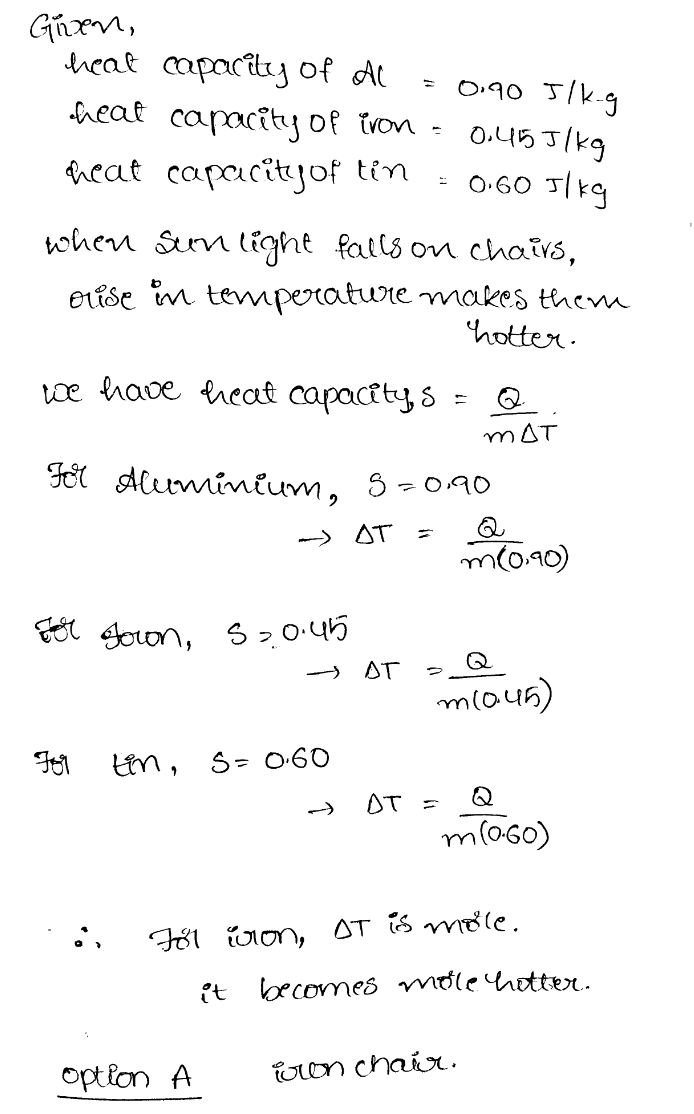 Given,
heat capacity of Al = 0.90 J/kg
heat capacity of iron = 0.45 J/kg
heat capacity of tin = 0.60 J/kg
when sun light falls on chairs,
rise in temperature makes them
hotter.
we have heat capacity, s = Q / mΔT
For Aluminium, S = 0.90
→ ΔT = Q / m(0.90)
For iron, S = 0.45
→ ΔT = Q / m(0.45)
For tin, S = 0.60
→ ΔT = Q / m(0.60)
∴ For iron, ΔT is more.
it becomes more hotter.
option A iron chair.